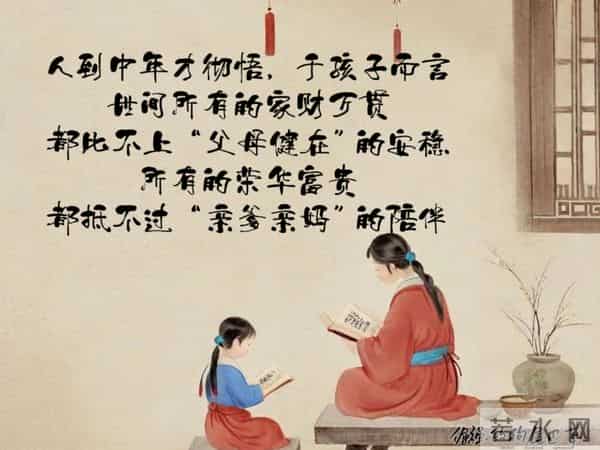 人到中年才彻悟，于孩子而言
世间所有的家财万贯
都比不上“父母健在”的安稳
所有的荣华富贵
都抵不过“亲爹亲妈”的陪伴
若水网